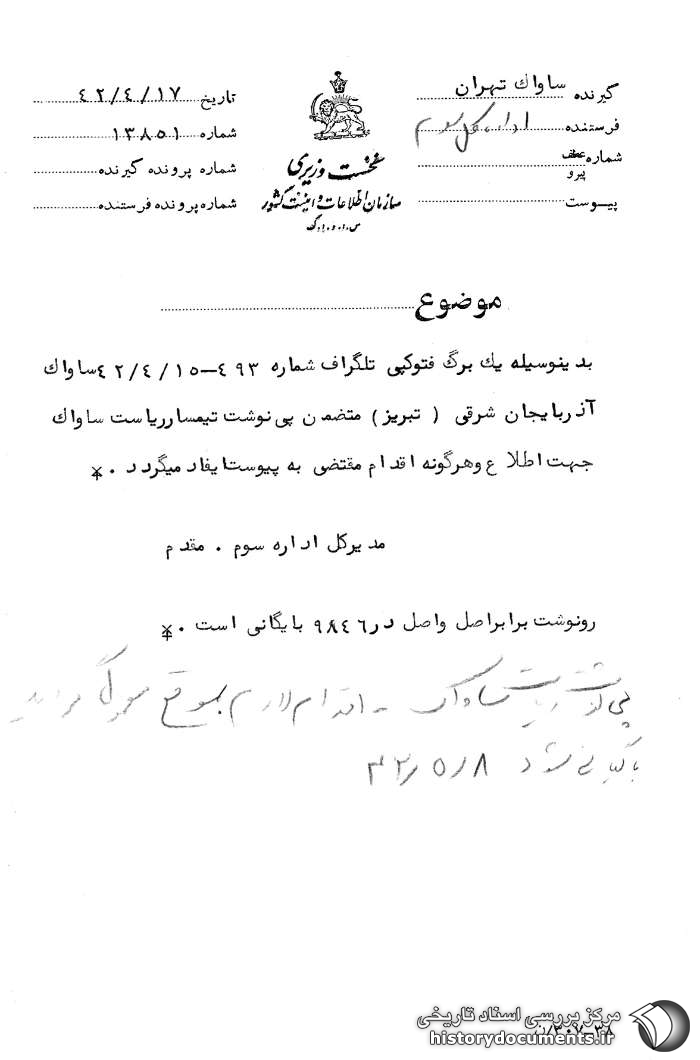 گیرنده ساواک تهران
فرستنده اداره کل سوم
شماره عطف
پیرو
پیوست
نخست وزیری
سازمان اطلاعات و امنیت کشور
س.ا.و.ا.ک
تاریخ ۴۲/۴/۱۷
شماره ۱۳۸۵۱
شماره پرونده گیرنده
شماره پرونده فرستنده
موضوع
بدینوسیله یک برگ فتوکپی تلگراف شماره ۴۹۳–۴۲/۴/۱۵ ساواک
آذربایجان شرقی (تبریز) متضمن پی نوشت تیمسار ریاست ساواک
جهت اطلاع و هرگونه اقدام مقتضی به پیوست ایفاد میگردد .*
مدیرکل اداره سوم . مقدم
رونوشت برابر اصل واصل در ۹۸۴۶ بایگانی است .*
پی نوشت ریاست ساواک - اقدام لازم بموقع معمول گردید
بایگانی شود ۴۲/۵/۸
مرکز بررسی اسناد تاریخی
historydocuments.ir